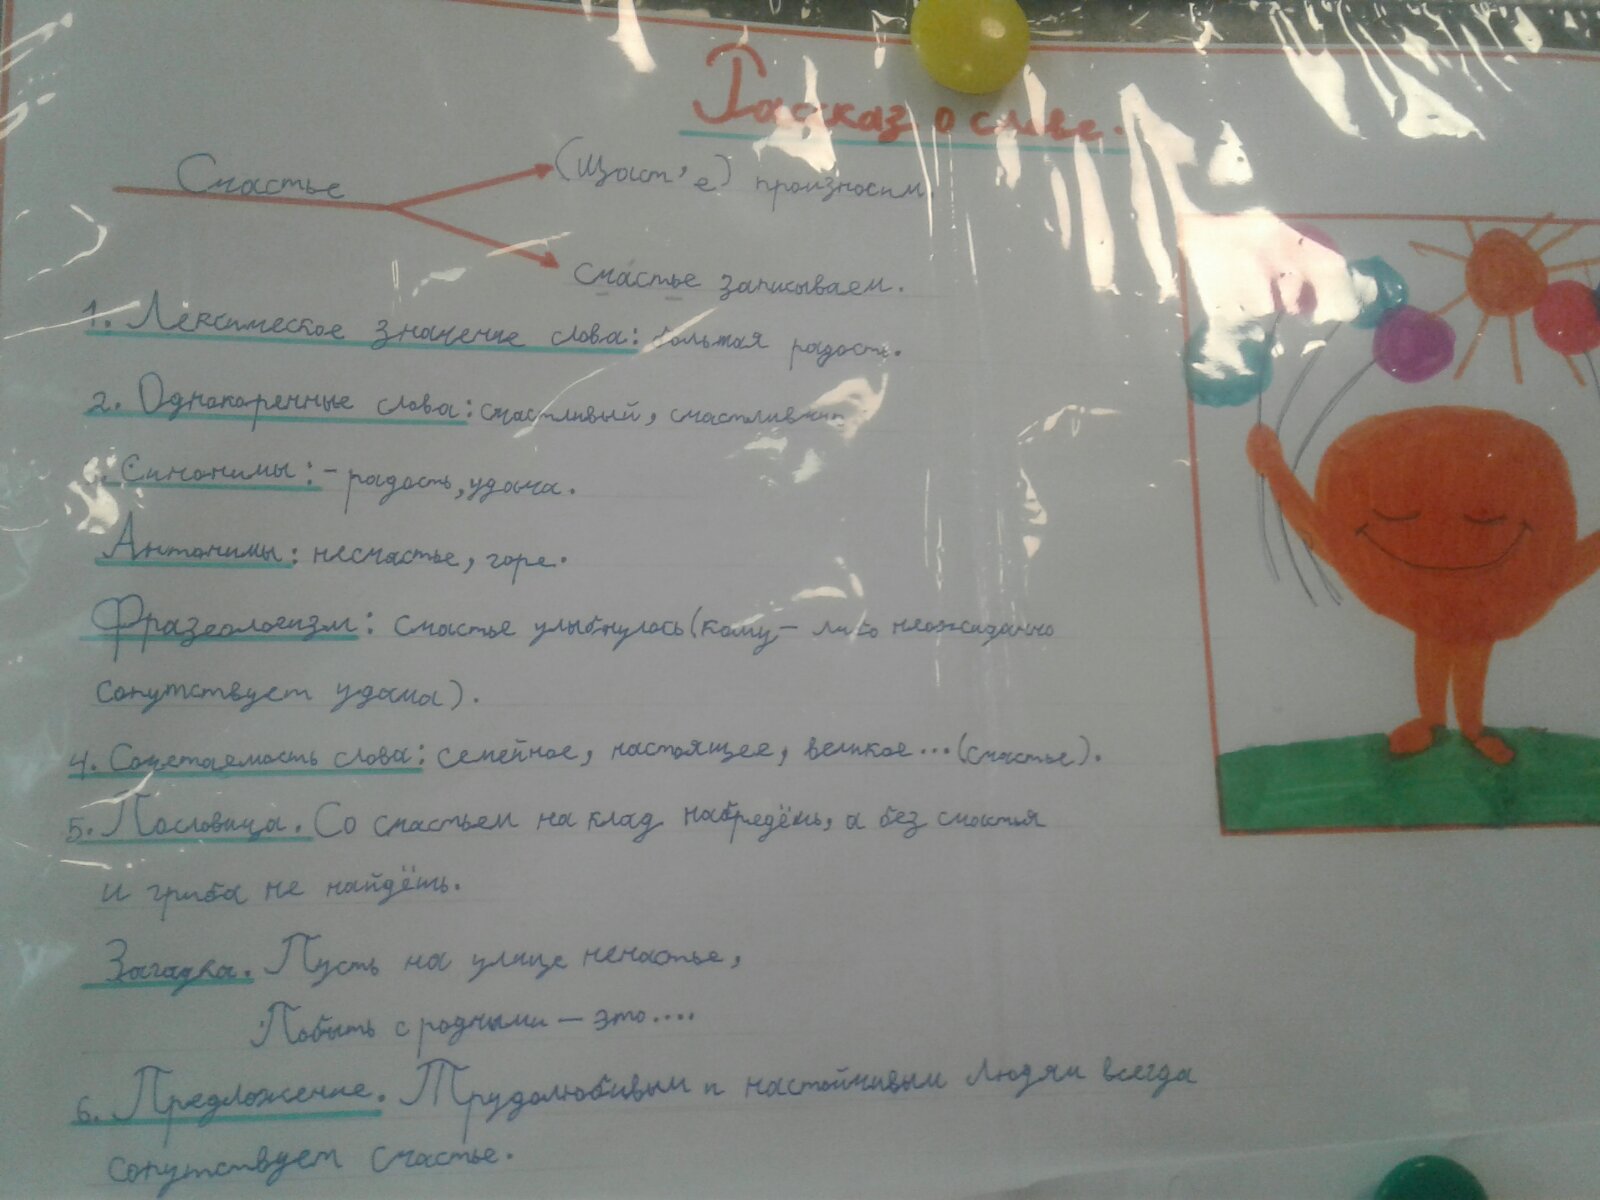 Рассказ о слове.
Счастье
(Щаст'е) произносим.
счастье записываем.
1. Лексическое значение слова: большая радость.
2. Однокоренные слова: счастливый, счастливчик
Синонимы: - радость, удача.
Антонимы: несчастье, горе.
Фразеологизм: счастье улыбнулось (кому - либо неожиданно
сопутствует удача).
4. Сочетаемость слова: семейное, настоящее, великое... (счастье).
5. Пословица. Со счастьем на клад набредёшь, а без счастья
и гриба не найдёшь.
Загадка. Пусть на улице ненастье,
Побыть с родными — это....
6. Предложение. Трудолюбивым и настойчивым людям всегда
сопутствует счастье.